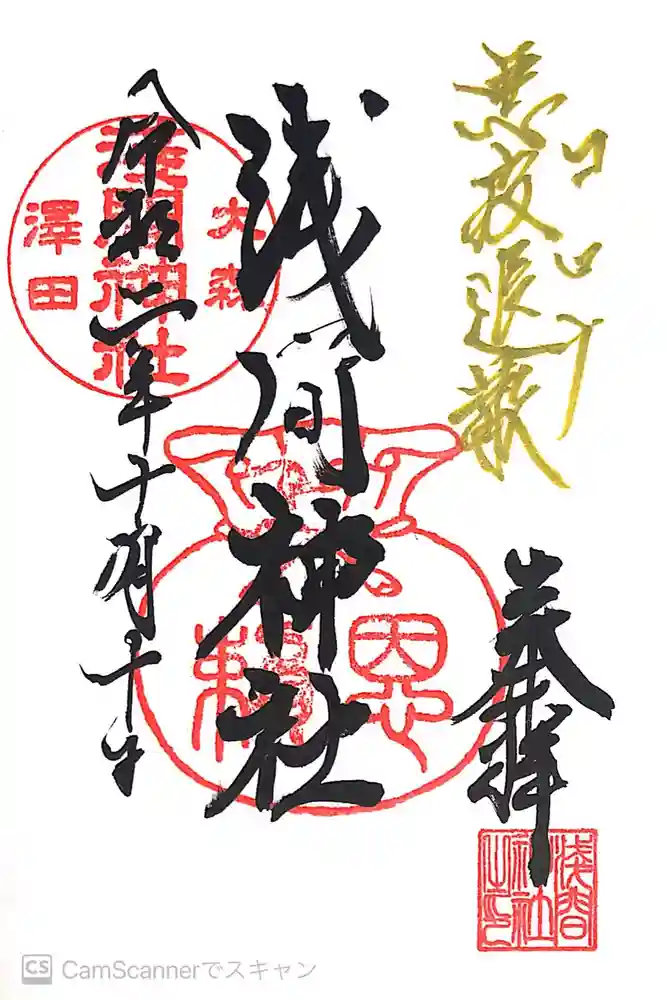 コロナ
悪疫退散
奉拝
浅間神社
令和二年十月十日
大森
浅間神社
澤田
恩頼
浅間
神社
之印
CS CamScannerでスキャン